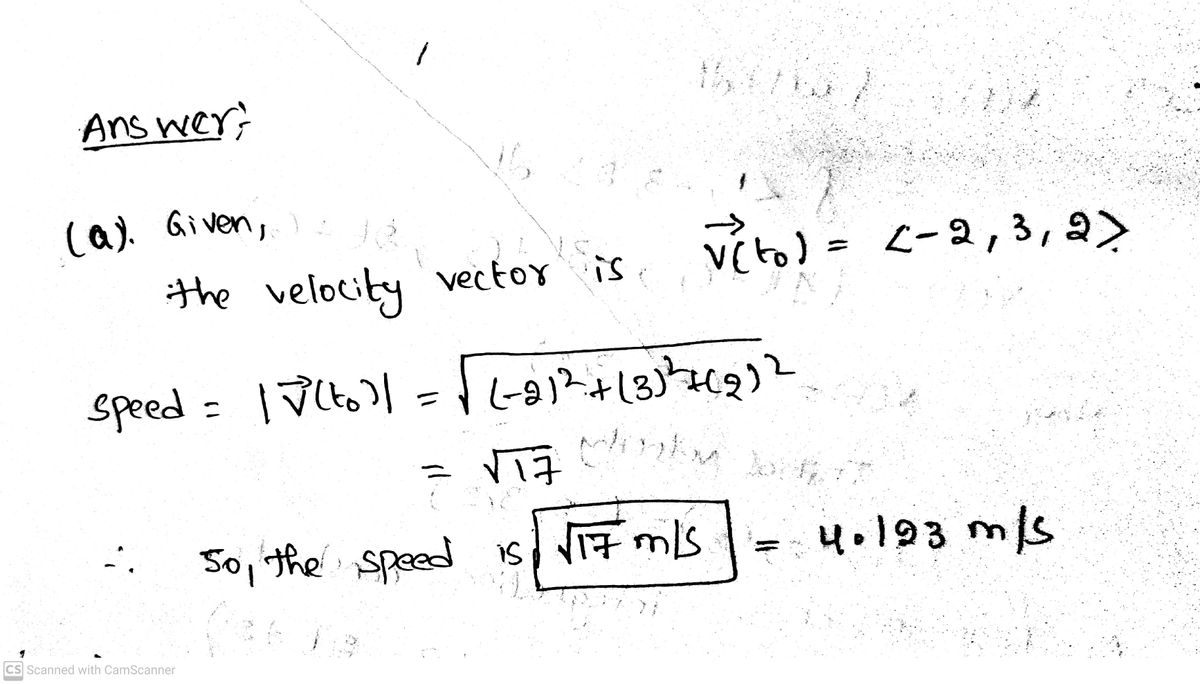 Answer:
(a). Given,
the velocity vector is v⃗(t₀) = <-2, 3, 2>.
speed = |v⃗(t₀)| = √((-2)²+(3)²+(2)²
= √17
∴ So, the speed is √17 m/s = 4.123 m/s
CS Scanned with CamScanner